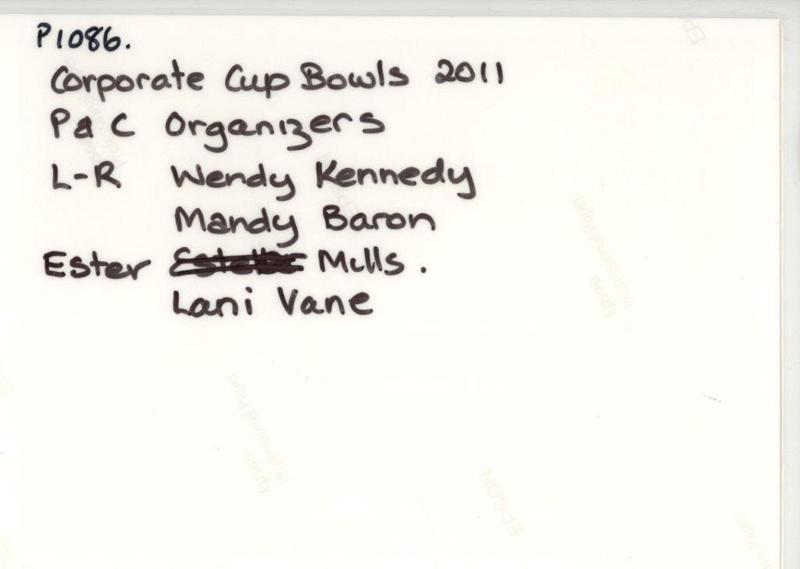 P1086.
Corporate Cup Bowls 2011
P & C Organizers
L-R Wendy Kennedy
Mandy Baron
Ester Mills.
Lani Vane